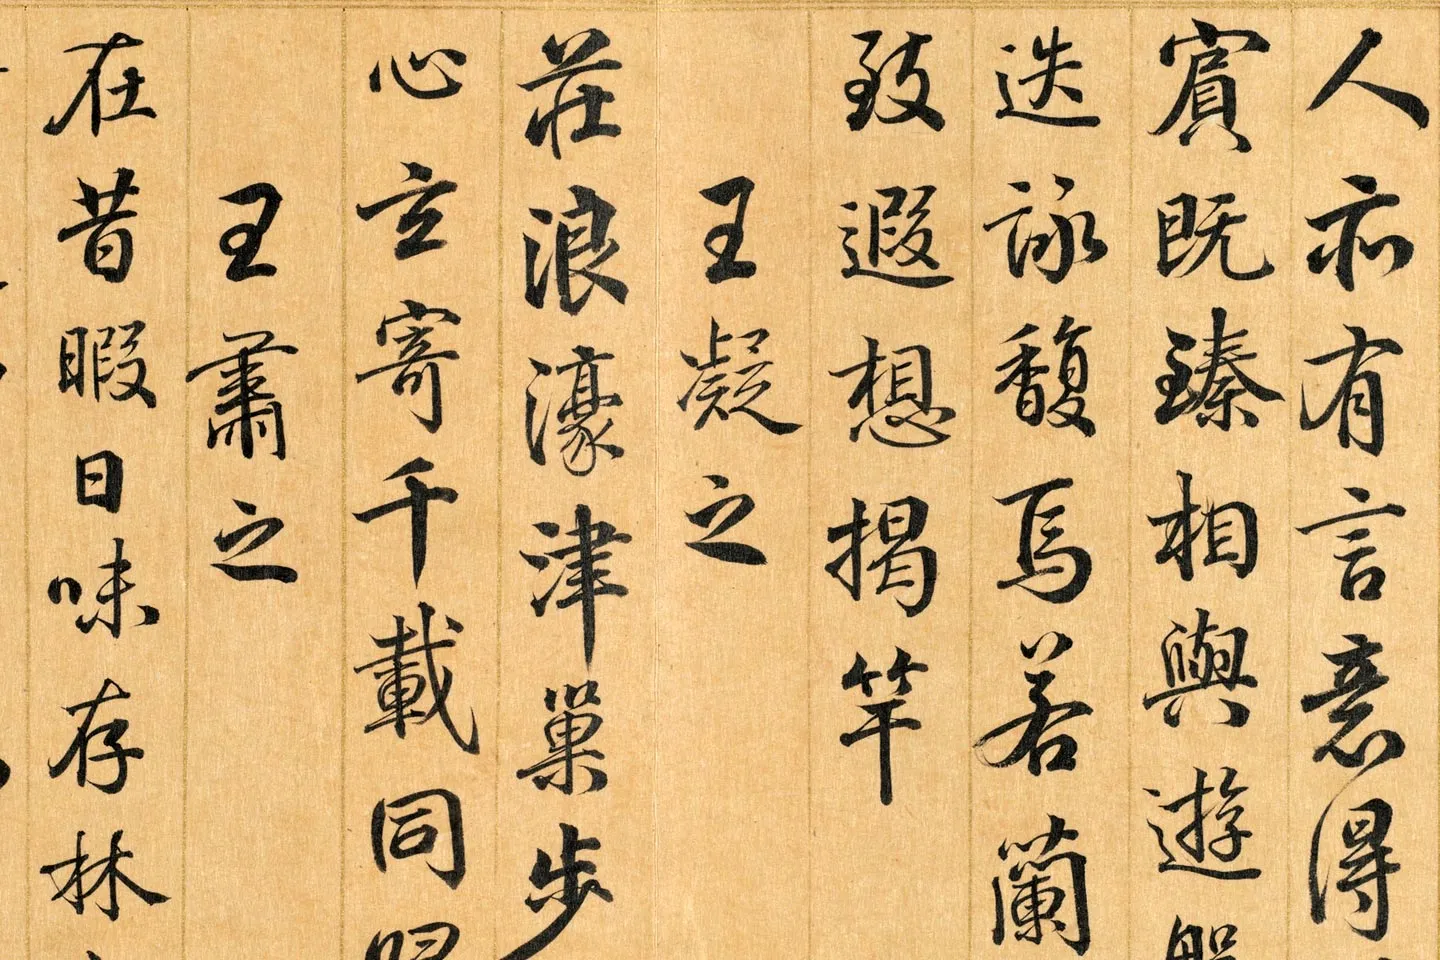 人亦有言意得
賓既臻相與遊盤
迭詠馥焉若蘭
致遐想揭竿
王凝之
莊浪濠津巢步
心立寄千載同歸
王肅之
在昔暇日味存林